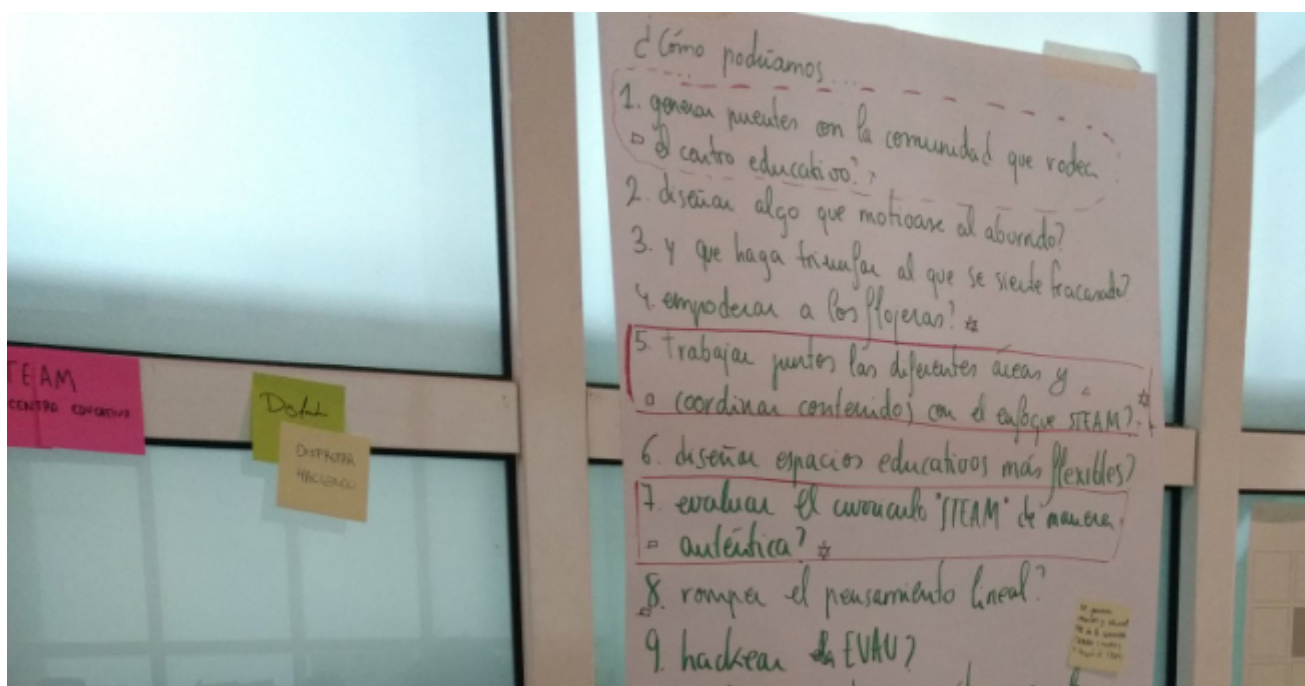 ¿Cómo podríamos...
1. generar puentes con la comunidad que rodea
el centro educativo?
2. diseñar algo que motivase al aburrido?
3. y que haga triunfar al que se siente fracasado?
4. empoderar a los flojeras?
5. trabajar juntos las diferentes áreas y
coordinar contenidos con el enfoque STEAM?
6. diseñar espacios educativos más flexibles?
7. evaluar el curriculo "STEAM" de manera
auténtica?
8. romper el pensamiento lineal?
9. hackear la EVAU?
TEAM
CENTRO EDUCATIVO
DISFRUTAR
HACIENDO